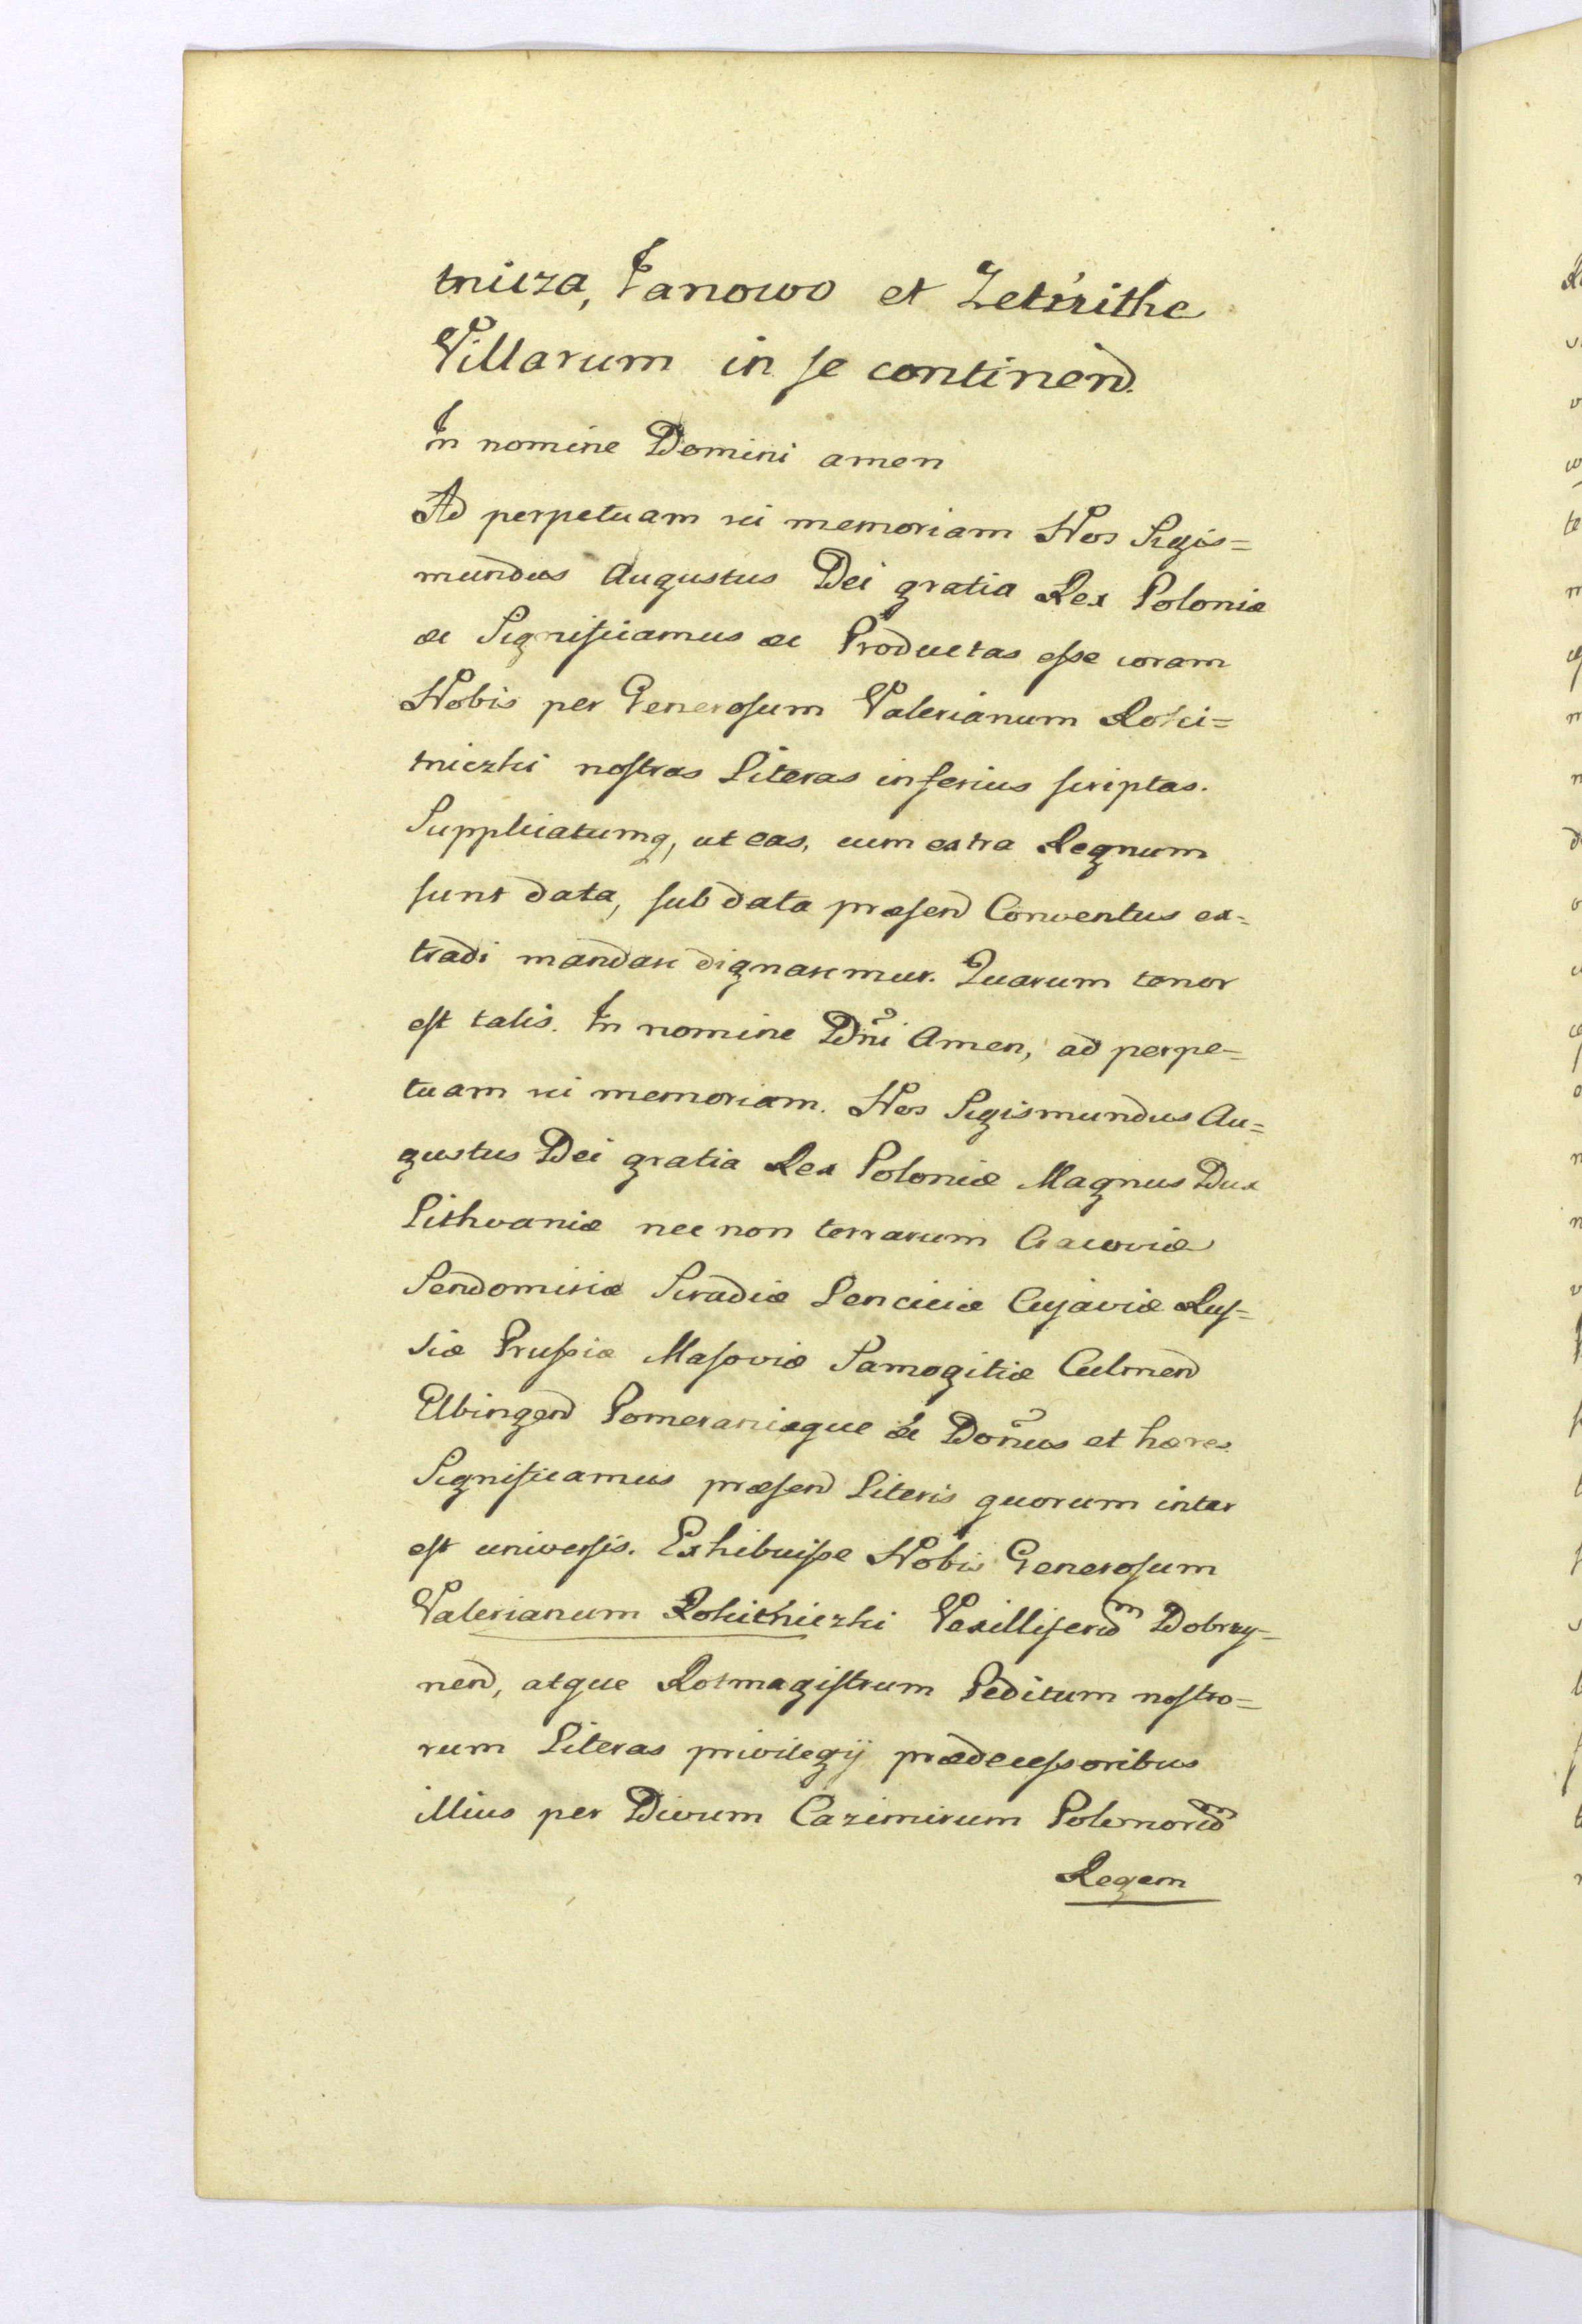 tnicza, Janowo et Zetrzithe
Villarum in se continend.
In nomine Domini amen
Ad perpetuam rei memoriam Nos Sigis=
mundus Augustus Dei gratia Rex Poloniæ
&c Significamus &c Productas esse coram
Nobis per Generosum Valerianum Roki=
tniczki nostras Literas inferius scriptas.
Supplicatumq, ut eas, cum extra Regnum
sunt data, sub data præsend Conventus ex=
tradi mandare dignaremur. Quarum tenor
est talis. In nomine Dñi Amen, ad perpe=
tuam rei memoriam. Nos Sigismundus Au=
gustus Dei gratia Rex Poloniæ Magnus Dux
Lithvaniæ nec non terrarum Cracoviæ
Sendomiriæ Siradiæ Lenciciæ Cujaviæ Rus=
siæ Prussiæ Masoviæ Samogitiæ Culmend
Elbingend Pomeraniæque &c Doñus et hæres.
Significamus præsend Literis quorum inter
est universis. Exhibuisse Nobis Generosum
Valerianum Rokithiczki Vexilliferum Dobrzy=
nend, atque Rotmagistrum Peditum nostro=
rum Literas privilegij prædecessoribus
illius per Divum Cazimirum Polonorum
Regem